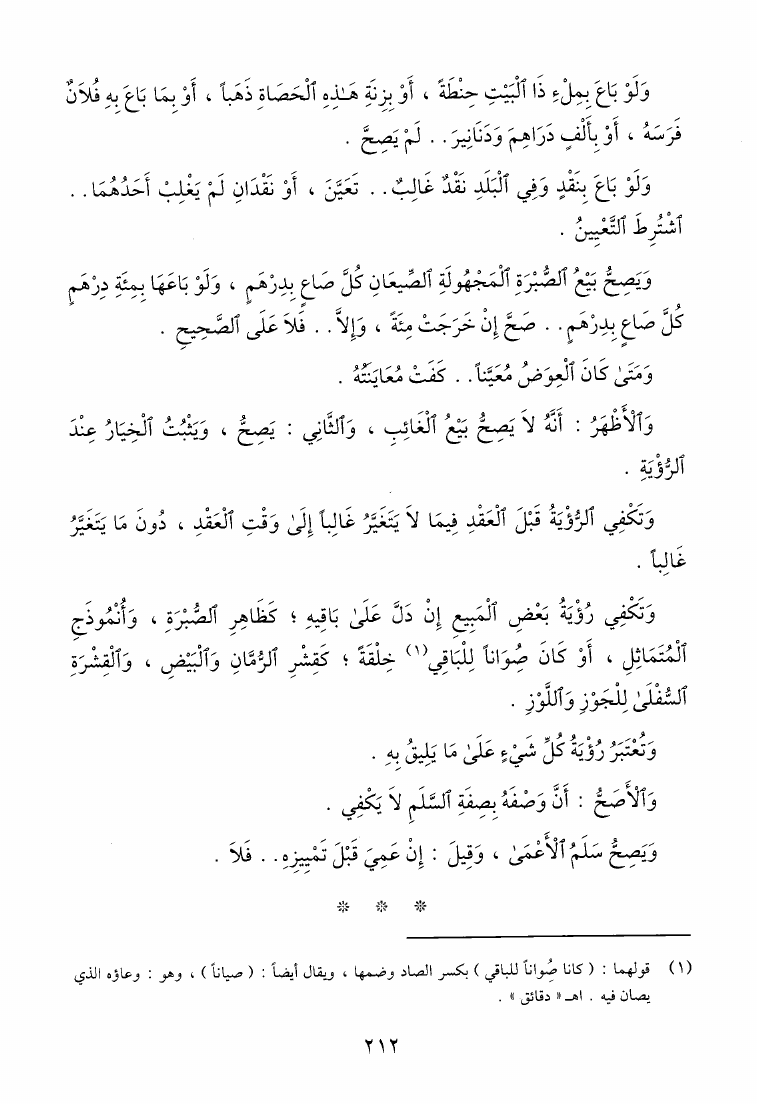 وَلَوْ بَاعَ بِمِلْءِ ذَا ٱلْبَيْتِ حِنْطَةً ، أَوْ بِزِنَةِ هَـٰذِهِ ٱلْحَصَاةِ ذَهَباً ، أَوْ بِمَا بَاعَ بِهِ فُلاَنٌ
فَرَسَهُ ، أَوْ بِأَلْفٍ دَرَاهِمَ وَدَنَانِيرَ. . لَمْ يَصِحَّ .
وَلَوْ بَاعَ بِنَقْدٍ وَفِي ٱلْبَلَدِ نَقْدٌ غَالِبٌ. . تَعَيَّنَ ، أَوْ نَقْدَانِ لَمْ يَغْلِبْ أَحَدُهُمَا. .
ٱشْتُرِطَ ٱلتَّعْيِينُ .
وَيَصِحُّ بَيْعُ ٱلصُّبْرَةِ ٱلْمَجْهُولَةِ ٱلصِّيعَانِ كُلَّ صَاعٍ بِدِرْهَمٍ ، وَلَوْ بَاعَهَا بِمِئَةِ دِرْهَمٍ
كُلَّ صَاعٍ بِدِرْهَمٍ. . صَحَّ إِنْ خَرَجَتْ مِئَةً ، وَإِلاَّ. . فَلاَ عَلَى ٱلصَّحِيحِ .
وَمَتَىٰ كَانَ ٱلْعِوَضُ مُعَيَّناً. . كَفَتْ مُعَايَنَتُهُ .
وَٱلأَظْهَرُ : أَنَّهُ لاَ يَصِحُّ بَيْعُ ٱلْغَائِبِ ، وَٱلثَّانِي : يَصِحُّ ، وَيَثْبُتُ ٱلْخِيَارُ عِنْدَ
ٱلرُّؤْيَةِ .
وَتَكْفِي ٱلرُّؤْيَةُ قَبْلَ ٱلْعَقْدِ فِيمَا لاَ يَتَغَيَّرُ غَالِباً إِلَىٰ وَقْتِ ٱلْعَقْدِ ، دُونَ مَا يَتَغَيَّرُ
غَالِباً .
وَتَكْفِي رُؤْيَةُ بَعْضِ ٱلْمَبِيعِ إِنْ دَلَّ عَلَىٰ بَاقِيهِ ؛ كَظَاهِرِ ٱلصُّبْرَةِ ، وَأُنْمُوذَجِ
ٱلْمُتَمَاثِلِ ، أَوْ كَانَ صُِوَاناً لِلْبَاقِي(١) خِلْقَةً ؛ كَقِشْرِ ٱلرُّمَّانِ وَٱلْبَيْضِ ، وَٱلْقِشْرَةِ
ٱلسُّفْلَىٰ لِلْجَوْزِ وَٱللَّوْزِ .
وَتُعْتَبَرُ رُؤْيَةُ كُلِّ شَيْءٍ عَلَىٰ مَا يَلِيقُ بِهِ .
وَٱلأَصَحُّ : أَنَّ وَصْفَهُ بِصِفَةِ ٱلسَّلَمِ لاَ يَكْفِي .
وَيَصِحُّ سَلَمُ ٱلأَعْمَىٰ ، وَقِيلَ : إِنْ عَمِيَ قَبْلَ تَمْيِيزِهِ. . فَلاَ .
* * *
(١) قولهما : ( كانا صُِواناً للباقي ) بكسر الصاد وضمها ، ويقال أيضاً : ( صياناً ) ، وهو : وعاؤه الذي
يصان فيه . اهـ « دقائق » .
٢١٢